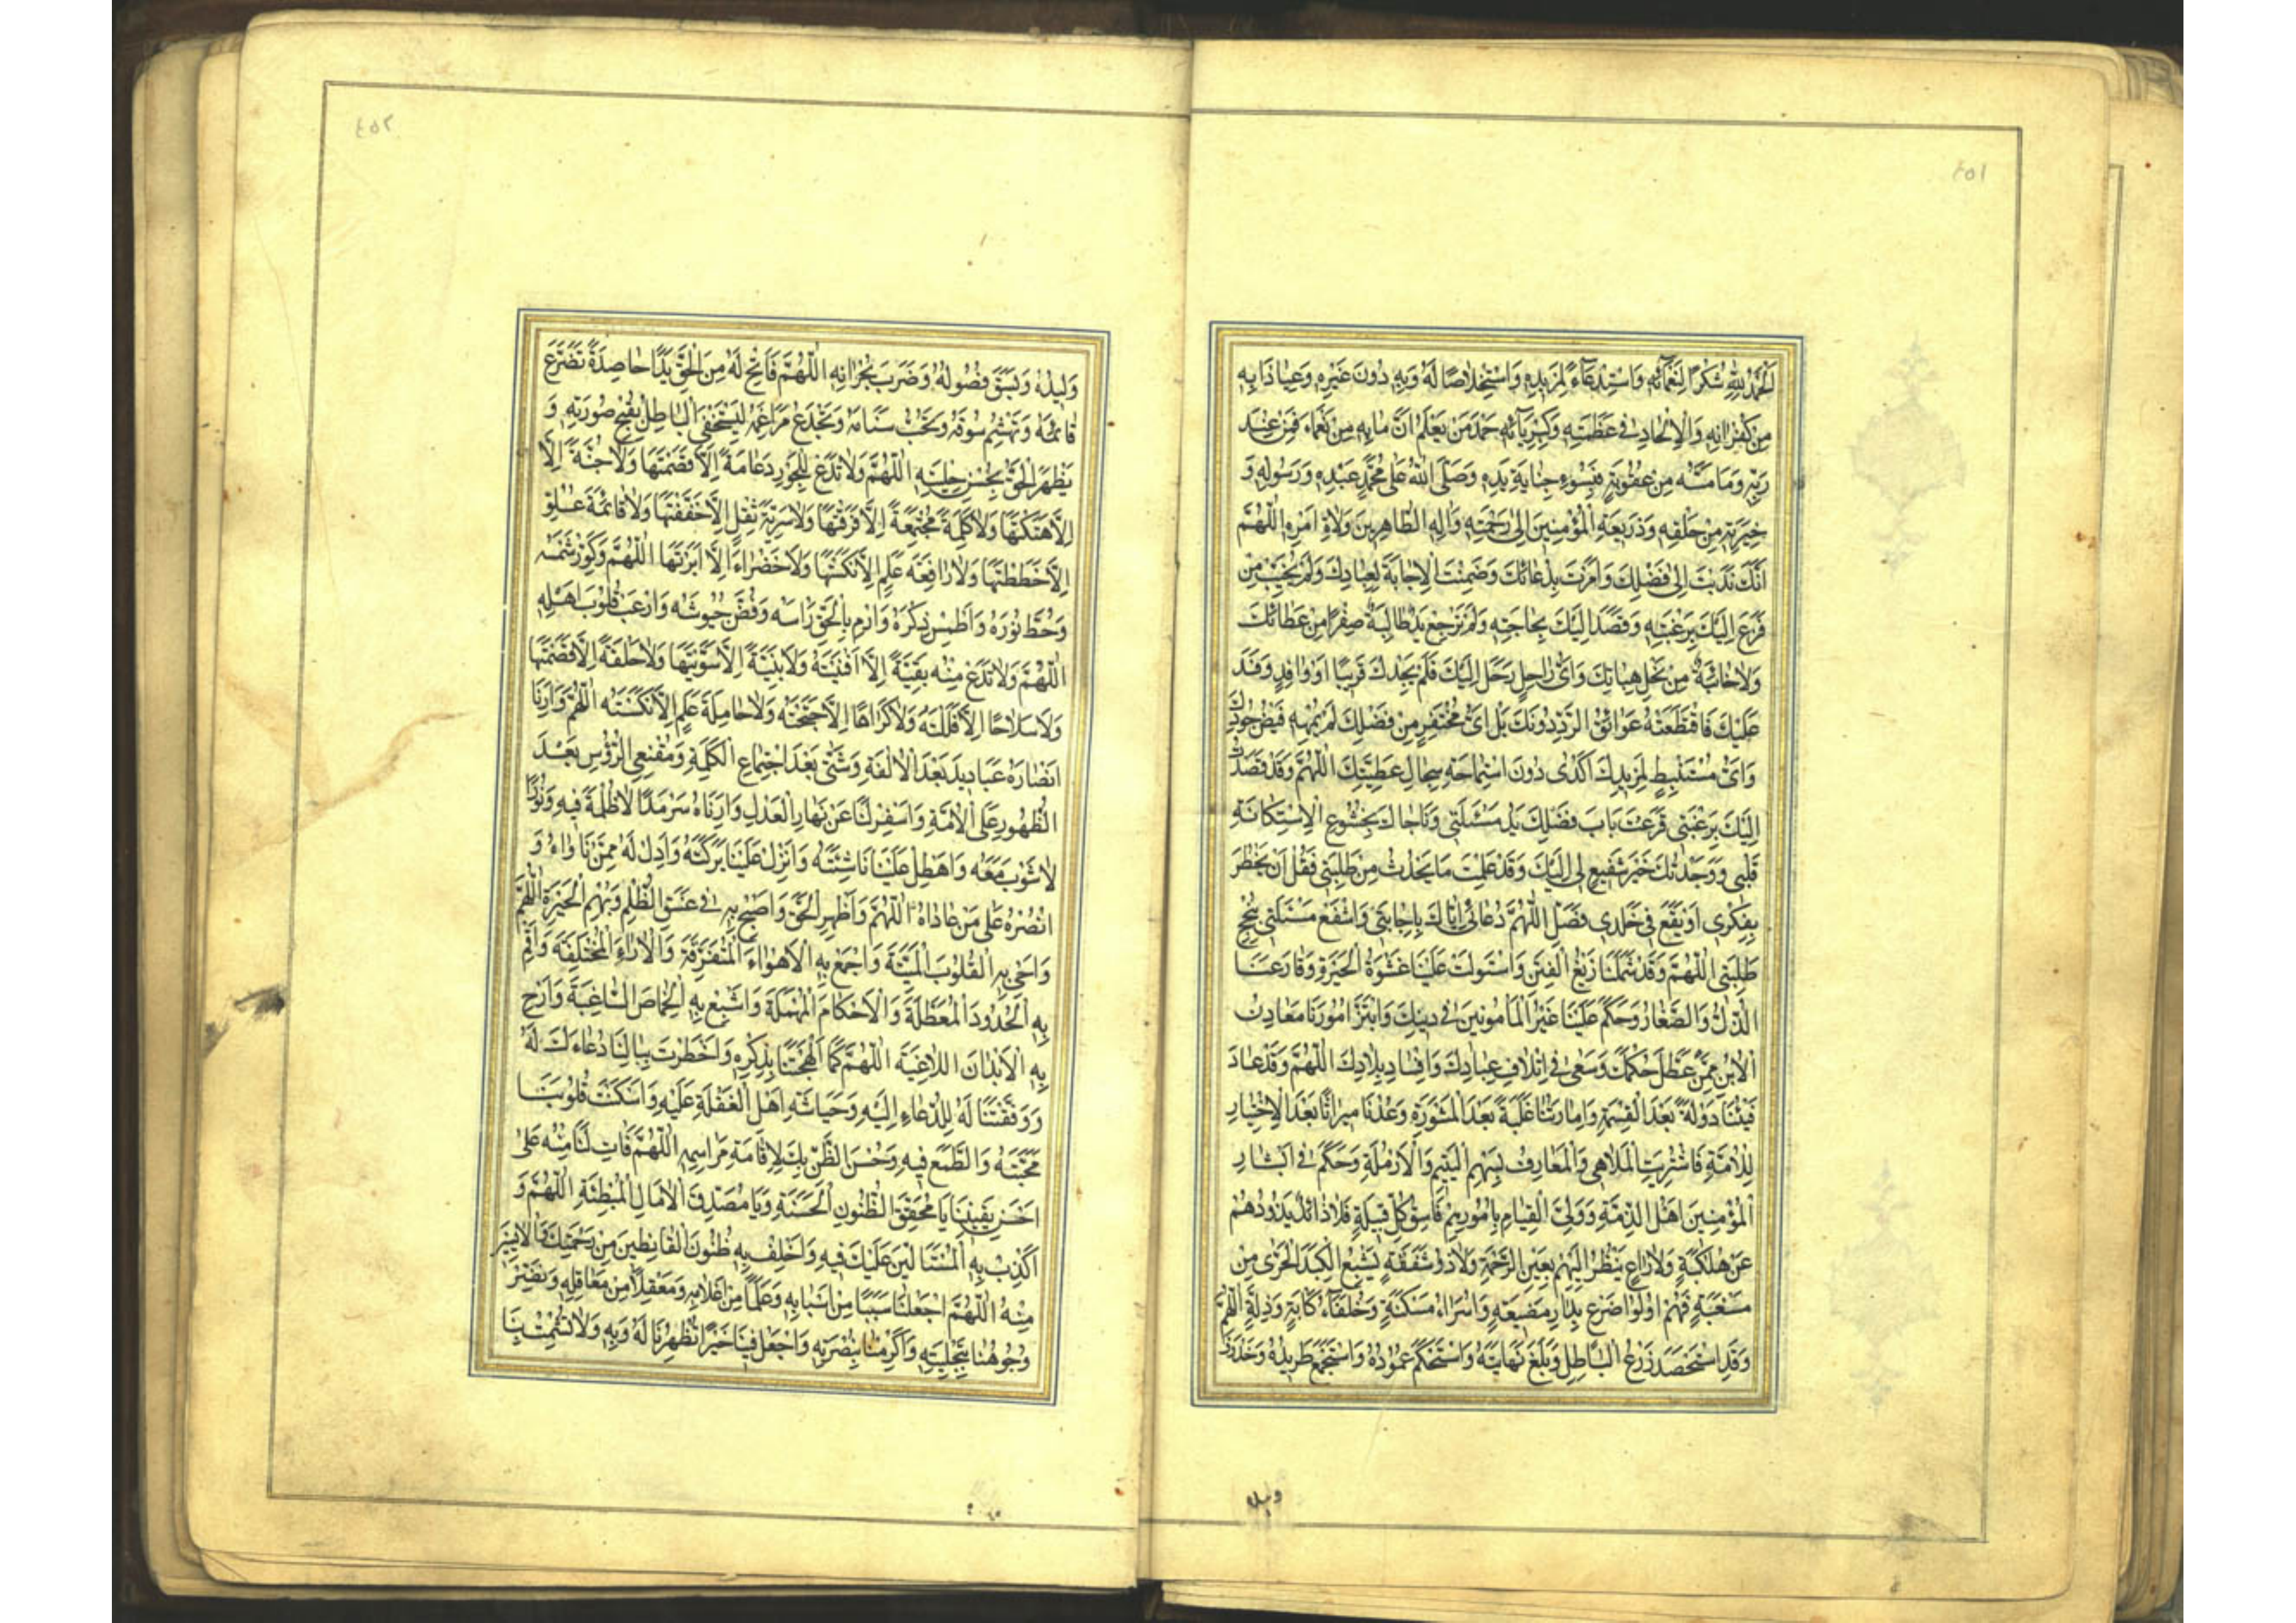 ٤٥١
اَلْحَمْدُ لِلّٰهِ شُكْرًا لِنَعْمَائِهِ وَاسْتِدْعَاءً لِمَزِيدِهِ وَاسْتِخْلَاصًا لَهُ وَبِهِ دُونَ غَيْرِهِ وَعِيَاذًا بِهِ
مِنْ كُفْرَانِهِ وَالْاِلْحَادِ فِي عَظَمَتِهِ وَكِبْرِيَائِهِ حَمْدَ مَنْ يَعْلَمُ اَنَّ مَا بِهِ مِنْ نَعْمَاءَ فَمِنْ عِنْدِ
رَبِّهِ وَمَا مَسَّهُ مِنْ عُقُوبَةٍ فَبِسُوءِ جِنَايَةِ يَدِهِ وَصَلَّى اللّٰهُ عَلٰى مُحَمَّدٍ عَبْدِهِ وَرَسُولِهِ وَ
خِيَرَتِهِ مِنْ خَلْقِهِ وَذَرِيعَةِ الْمُؤْمِنِينَ اِلٰى رَحْمَتِهِ وَاٰلِهِ الطَّاهِرِينَ وُلَاةِ اَمْرِهِ اَللّٰهُمَّ
اِنَّكَ نَدَبْتَ اِلٰى فَضْلِكَ وَاَمَرْتَ بِدُعَائِكَ وَضَمِنْتَ الْاِجَابَةَ لِعِبَادِكَ وَلَمْ تُخَيِّبْ مَنْ
فَزِعَ اِلَيْكَ بِرَغْبَتِهِ وَقَصَدَ اِلَيْكَ بِحَاجَتِهِ وَلَمْ تَرْجِعْ يَدٌ طَالِبَةٌ صِفْرًا مِنْ عَطَائِكَ
وَلَا خَائِبَةً مِنْ نِحَلِ هِبَاتِكَ وَاَيُّ رَاحِلٍ رَحَلَ اِلَيْكَ فَلَمْ يَجِدْكَ قَرِيبًا اَوْ وَافِدٍ وَفَدَ
عَلَيْكَ فَاقْتَطَعَتْهُ عَوَائِقُ الرَّدِّ دُونَكَ بَلْ اَيُّ مُحْتَفِرٍ مِنْ فَضْلِكَ لَمْ يُمْهِهِ فَيْضُ جُودِكَ
وَاَيُّ مُسْتَنْبِطٍ لِمَزِيدِكَ اَكْدٰى دُونَ اسْتِمَاحَةِ سِجَالِ عَطِيَّتِكَ اَللّٰهُمَّ وَقَدْ قَصَدْتُ
اِلَيْكَ بِرَغْبَتِي قَرَعْتُ بَابَ فَضْلِكَ يَدُ مَسْئَلَتِي وَنَاجَاكَ بِخُشُوعِ الْاِسْتِكَانَةِ
قَلْبِي وَوَجَدْتُكَ خَيْرَ شَفِيعٍ لِي اِلَيْكَ وَقَدْ عَلِمْتَ مَا يَحْدُثُ مِنْ طَلِبَتِي قَبْلَ اَنْ يَخْطُرَ
بِفِكْرِي اَوْ يَقَعَ فِي خَلَدِي فَصِلِ اللّٰهُمَّ دُعَائِي اِيَّاكَ بِاِجَابَتِي وَاشْفَعْ مَسْئَلَتِي بِنُجْحِ
طَلِبَتِي اَللّٰهُمَّ وَقَدْ شَمِلَنَا زَيْغُ الْفِتَنِ وَاسْتَوْلَتْ عَلَيْنَا غَشْوَةُ الْحَيْرَةِ وَقَارَعَنَا
الذُّلُّ وَالصَّغَارُ وَحَكَمَ عَلَيْنَا غَيْرُ الْمَأْمُونِينَ فِي دِينِكَ وَابْتَزَّ اُمُورَنَا مَعَادِنُ
الْاُبَنِ مِمَّنْ عَطَّلَ حُكْمَكَ وَسَعٰى فِي اِتْلَافِ عِبَادِكَ وَاِفْسَادِ بِلَادِكَ اَللّٰهُمَّ وَقَدْ عَادَ
فَيْئُنَا دُولَةً بَعْدَ الْقِسْمَةِ وَاِمَارَتُنَا غَلَبَةً بَعْدَ الْمَشْوَرَةِ وَعُدْنَا مِيرَاثًا بَعْدَ الْاِخْتِيَارِ
لِلْاُمَّةِ فَاشْتُرِيَتِ الْمَلَاهِي وَالْمَعَازِفُ بِسَهْمِ الْيَتِيمِ وَالْاَرْمَلَةِ وَحَكَمَ فِي اَبْشَارِ
الْمُؤْمِنِينَ اَهْلُ الذِّمَّةِ وَوَلِيَ الْقِيَامَ بِاُمُورِهِمْ فَاسِقُ كُلِّ قَبِيلَةٍ فَلَا ذَائِدٌ يَذُودُهُمْ
عَنْ هَلَكَةٍ وَلَا رَاعٍ يَنْظُرُ اِلَيْهِمْ بِعَيْنِ الرَّحْمَةِ وَلَا ذُو شَفَقَةٍ يُشْبِعُ الْكَبِدَ الْحَرّٰى مِنْ
مَسْغَبَةٍ فَهُمْ اُولُوا ضَرَعٍ بِدَارِ مَضِيعَةٍ وَاُسَرَاءُ مَسْكَنَةٍ وَخُلَفَاءُ كَابَةٍ وَذِلَّةٍ اَللّٰهُمَّ
وَقَدِ اسْتَحْصَدَ زَرْعُ الْبَاطِلِ وَبَلَغَ نِهَايَتَهُ وَاسْتَحْكَمَ عَمُودُهُ وَاسْتَجْمَعَ طَرِيدُهُ وَخَذْرَفَ
وليده
٤٥٢
وَلِيدُهُ وَبَسَقَ فُضُولُهُ وَضَرَبَ بِجِرَانِهِ اَللّٰهُمَّ فَاَتِحْ لَهُ مِنَ الْحَقِّ يَدًا حَاصِدَةً تَصْرَعُ
قَائِمَهُ وَتَهْشِمُ سُوقَهُ وَتَجُبُّ سَنَامَهُ وَتَجْدَعُ مَرَاغِمَهُ لِيَسْتَخْفِيَ الْبَاطِلُ بِقُبْحِ صُورَتِهِ وَ
يَظْهَرَ الْحَقُّ بِحُسْنِ حِلْيَتِهِ اَللّٰهُمَّ وَلَا تَدَعْ لِلْجَوْرِ دِعَامَةً اِلَّا قَصَمْتَهَا وَلَا جُنَّةً اِلَّا
اِلَّا هَتَكْتَهَا وَلَا كَلِمَةً مُجْتَمِعَةً اِلَّا فَرَّقْتَهَا وَلَا سَرِيَّةَ ثِقْلٍ اِلَّا خَفَّفْتَهَا وَلَا قَائِمَةَ عُلُوٍّ
اِلَّا حَطَطْتَهَا وَلَا رَافِعَةَ عَلَمٍ اِلَّا نَكَّسْتَهَا وَلَا خَضْرَاءَ اِلَّا اَبَرْتَهَا اَللّٰهُمَّ وَكَوِّرْ شَمْسَهُ
وَحُطَّ نُورَهُ وَاطْمِسْ ذِكْرَهُ وَارْمِ بِالْحَقِّ رَاْسَهُ وَفُضَّ جُيُوشَهُ وَارْعَبْ قُلُوبَ اَهْلِهِ
اَللّٰهُمَّ وَلَا تَدَعْ مِنْهُ بَقِيَّةً اِلَّا اَفْنَيْتَهُ وَلَا بَنِيَّةً اِلَّا سَوَّيْتَهَا وَلَا حَلْقَةً اِلَّا قَصَمْتَهَا
وَلَا سِلَاحًا اِلَّا فَلَلْتَهُ وَلَا كُرَاعًا اِلَّا اجْتَحْتَهُ وَلَا حَامِلَةَ عَلَمٍ اِلَّا نَكَّسْتَهُ اَللّٰهُمَّ وَاَرِنَا
اَنْصَارَهُ عَبَادِيدَ بَعْدَ الْاُلْفَةِ وَشَتّٰى بَعْدَ اجْتِمَاعِ الْكَلِمَةِ وَمُقْنِعِي الرُّؤُسِ بَعْدَ
الظُّهُورِ عَلَى الْاُمَّةِ وَاَسْفِرْ لَنَا عَنْ نَهَارِ الْعَدْلِ وَاَرِنَاهُ سَرْمَدًا لَا ظُلْمَةَ فِيهِ وَنُورًا
لَا شَوْبَ مَعَهُ وَاهْطِلْ عَلَيْنَا نَاشِئَتَهُ وَاَنْزِلْ عَلَيْنَا بَرَكَتَهُ وَاَدِلْ لَهُ مِمَّنْ نَاوَاهُ وَ
انْصُرْهُ عَلٰى مَنْ عَادَاهُ اَللّٰهُمَّ وَاَظْهِرِ الْحَقَّ وَاَصْبِحْ بِهِ فِي غَسَقِ الظُّلَمِ وَبُهَمِ الْحَيْرَةِ اَللّٰهُمَّ
وَاَحْيِ بِهِ الْقُلُوبَ الْمَيِّتَةَ وَاجْمَعْ بِهِ الْاَهْوَاءَ الْمُتَفَرِّقَةَ وَالْاٰرَاءَ الْمُخْتَلِفَةَ وَاَقِمْ
بِهِ الْحُدُودَ الْمُعَطَّلَةَ وَالْاَحْكَامَ الْمُهْمَلَةَ وَاَشْبِعْ بِهِ الْخِمَاصَ السَّاغِبَةَ وَاَرِحْ
بِهِ الْاَبْدَانَ اللَّاغِبَةَ اَللّٰهُمَّ كَمَا اَلْهَجْتَنَا بِذِكْرِهِ وَاَخْطَرْتَ بِبَالِنَا دُعَاءَكَ لَهُ
وَوَفَّقْتَنَا لَهُ لِلدُّعَاءِ اِلَيْهِ وَحِيَاشَةِ اَهْلِ الْغَفْلَةِ عَلَيْهِ وَاَسْكَنْتَ قُلُوبَنَا
مَحَبَّتَهُ وَالطَّمَعَ فِيهِ وَحُسْنَ الظَّنِّ بِكَ لِاِقَامَةِ مَرَاسِمِهِ اَللّٰهُمَّ فَاٰتِ لَنَا مِنْهُ عَلٰى
اَحْسَنِ يَقِينِنَا يَا مُحَقِّقَ الظُّنُونِ الْحَسَنَةِ وَيَا مُصَدِّقَ الْاٰمَالِ الْمُبْطِئَةِ اَللّٰهُمَّ وَ
اَكْذِبْ بِهِ الْمُتَاَلِّينَ عَلَيْكَ فِيهِ وَاَخْلِفْ بِهِ ظُنُونَ الْقَانِطِينَ مِنْ رَحْمَتِكَ وَالْاٰيِسِينَ
مِنْهُ اَللّٰهُمَّ اجْعَلْنَا سَبَبًا مِنْ اَسْبَابِهِ وَعَلَمًا مِنْ اَعْلَامِهِ وَمَعْقِلًا مِنْ مَعَاقِلِهِ وَنَضِّرْ
وُجُوهَنَا بِتَحْلِيَتِهِ وَاَكْرِمْنَا بِنُصْرَتِهِ وَاجْعَلْ فِينَا خَيْرًا تُظْهِرُنَا لَهُ وَبِهِ وَلَا تُشْمِتْ بِنَا